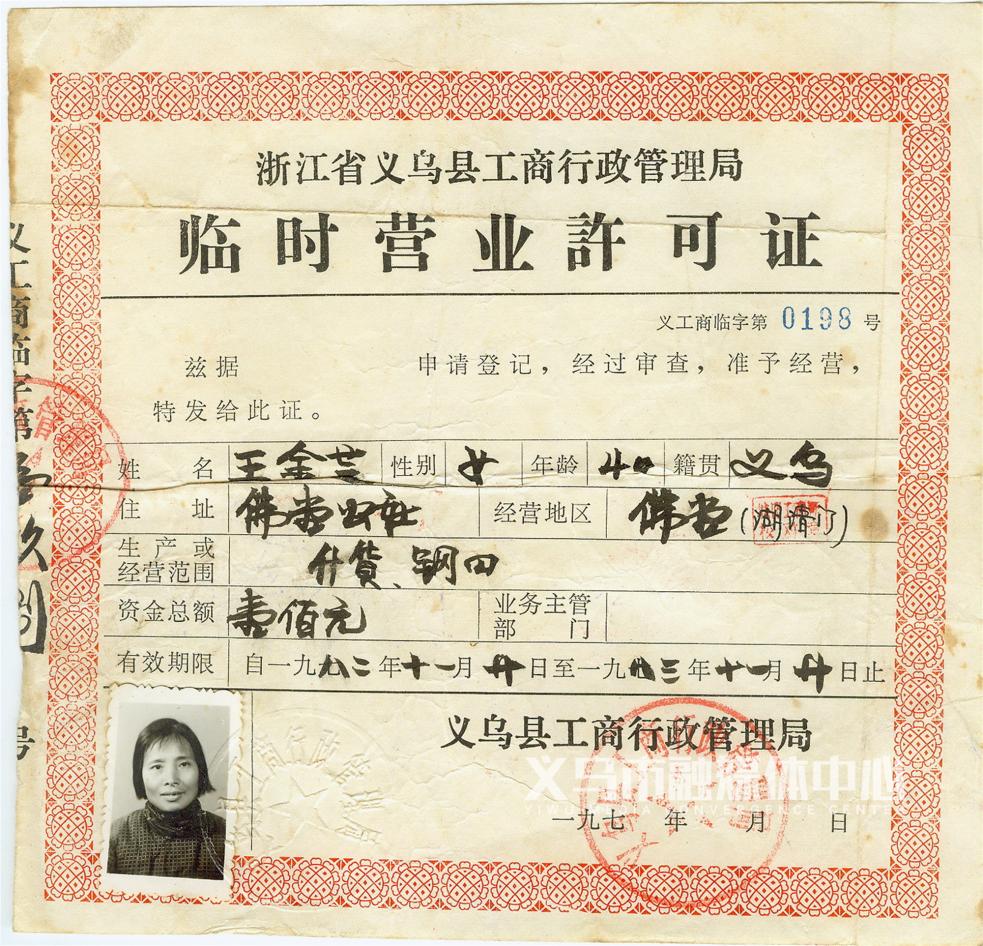 浙江省义乌县工商行政管理局
临时营业許可证
义工商临字第 0198 号
兹据 申请登记，经过审查，准予经营，
特发给此证。
姓名 王金兰 性别 女 年龄 40 籍贯 义乌
住址 佛堂公社 经营地区 佛堂(湖清门)
生产或经营范围 什货、钢四
资金总额 壹佰元 业务主管部门
有效期限 自一九八二年十一月廿日至一九八三年十一月廿日止
义乌县工商行政管理局
一九七 年 月 日
义工商临字第 玖捌号
义乌市融媒体中心
YIWU MEDIA CONVERGENCE CENTER